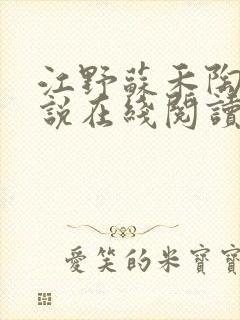 江野蘇禾陶
說在綫閱讀
愛笑的米寶寶